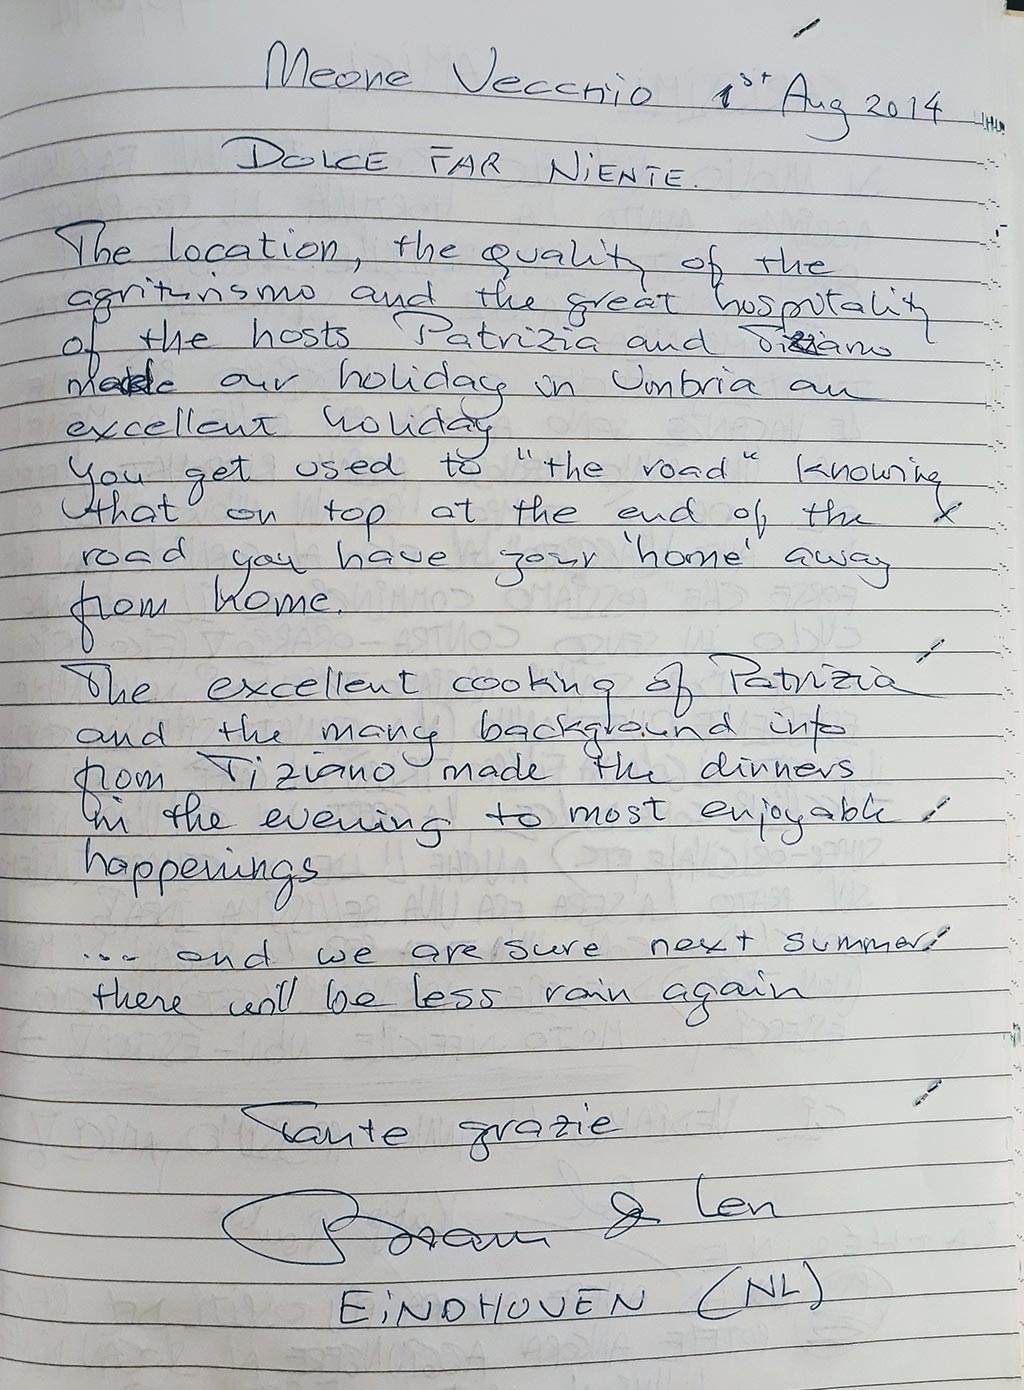 Meone Vecchio 1st Aug 2014
DOLCE FAR NIENTE.
The location, the quality of the
agriturismo and the great hospitality
of the hosts Patrizia and Tiziano
made our holiday in Umbria an
excellent holiday
You get used to "the road" knowing
that on top at the end of the
road you have your 'home' away
from home.
The excellent cooking of Patrizia
and the many background info
from Tiziano made the dinners
in the evening to most enjoyable
happenings
... and we are sure next summer
there will be less rain again
Tante grazie
Bram & Len
EINDHOVEN (NL)